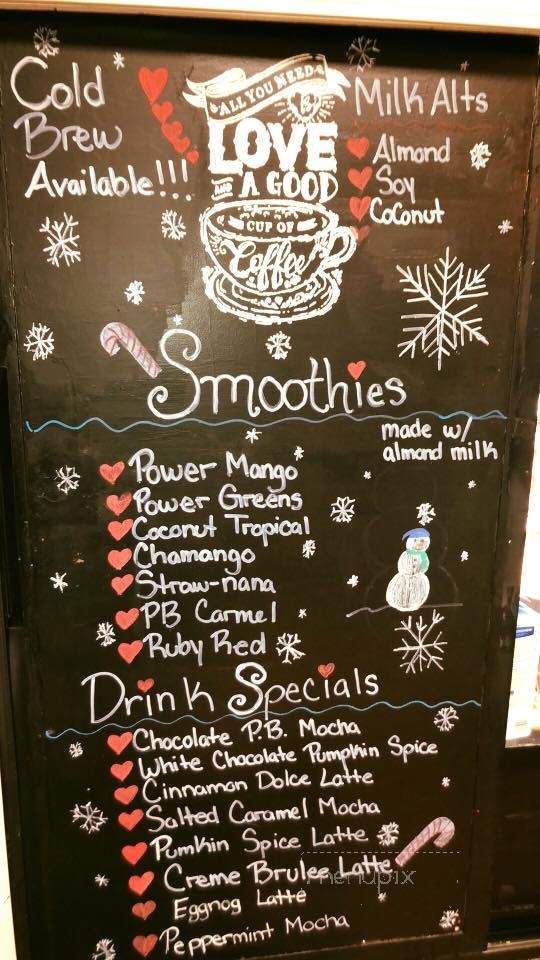 Cold
Brew
Available!!!
ALL YOU NEED
IS
LOVE
AND A GOOD
CUP OF
Coffee
Milk Alts
Almond
Soy
Coconut
Smoothies
made w/
almond milk
Power Mango
Power Greens
Coconut Tropical
Chamango
Straw-nana
PB Carmel
Ruby Red
Drink Specials
Chocolate P.B. Mocha
White Chocolate Pumpkin Spice
Cinnamon Dolce Latte
Salted Caramel Mocha
Pumkin Spice Latte
Creme Brulee Latte
Eggnog Latte
Peppermint Mocha
menupix